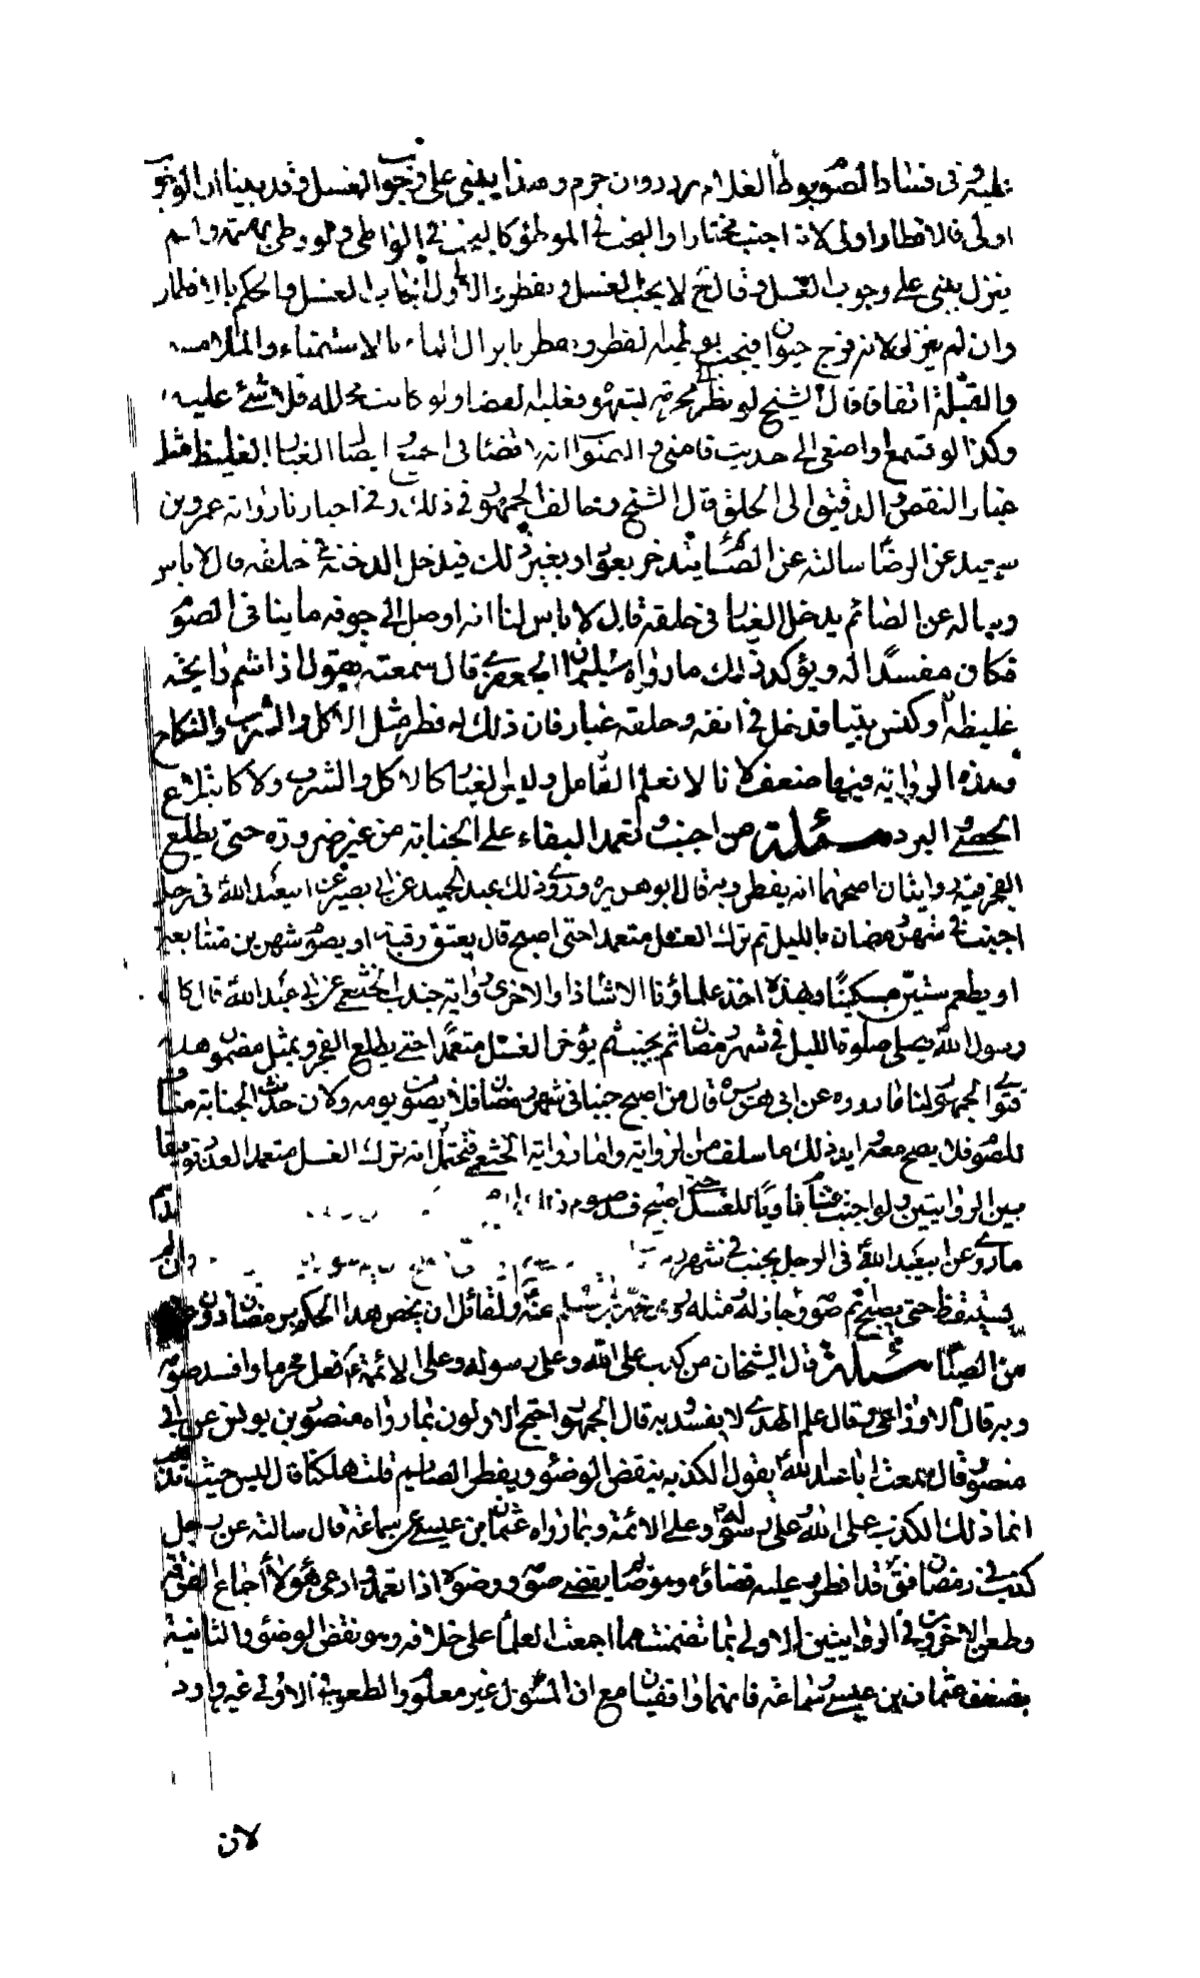 في فساد الصوم بوطئ الغلام تردد وان حرم وهذا يبنى على وجوب الغسل وقد بينا ان الوجوب
اولى فالافطار اولى لانه اجنب مختارا والبحث في الموطوء كالبحث في الواطي ولو وطئ بهيمة ولم
ينزل يبنى على وجوب الغسل وقال لا يجب الغسل ويفطر الاول ايجاب الغسل والحكم بالافطار
وان لم ينزل لانه فرج حيوان فيجب بوطيه الفطر ويفطر بانزال الماء بالاستمناء والملامسة
والقبلة اتفاقا قال الشيخ لو نظر محرمة بشهوة فعليه القضاء ولو كانت محللة فلا شئ عليه
وكذا لو تسمع او اصغى الى حديث فامنى ايضا الغبار الغليظ مثل
غبار النفض والدقيق الى الحلق قال الشيخ وخالف الجمهور في ذلك وفي اخبارنا رواية عمرو بن
سعيد عن الرضا سالته عن الصائم يتدخن بعود او بغير ذلك فيدخل الدخنة في حلقه قال لا باس
وساله عن الصائم يدخل الغبار في حلقه قال لا باس لنا انه اوصل الى جوفه ما ينافي الصوم
فكان مفسدا له ويؤكد ذلك ما رواه سليمان الجعفري قال سمعته يقول اذا شم رايحة
غليظة او كنس بيتا فدخل في انفه وحلقه غبار فان ذلك له فطر مثل الاكل والشرب والنكاح
وهذه الرواية فيها ضعف لانا لا نعلم القائل وليس الغبار كالاكل والشرب ولا كابتلاع
الحصى والبرد مسئلة من اجنب وتعمد البقاء على الجنابة من غير ضرورة حتى يطلع
الفجر فيه روايتان اصحهما انه يفطر وبه قال ابو هريرة وروى ذلك عبد الحميد عن ابي بصير عن ابيعبد الله في رجل
اجنب في شهر رمضان بالليل ثم ترك الغسل متعمدا حتى اصبح قال يعتق رقبة او يصوم شهرين متتابعين
او يطعم ستين مسكينا وبهذه اخذ علماؤنا الا شاذا والاخرى رواية الخثعمي عن ابي عبد الله قال كان
رسول الله يصلى صلوة الليل في شهر رمضان ثم يجنب ثم يؤخر الغسل متعمدا حتى يطلع الفجر وبمثل مضمون هذه
قال الجمهور لنا ما رووه عن ابي هريرة قال من اصبح جنبا في شهر رمضان فلا يصوم يومه ولان حدث الجنابة مناف
للصوم فلا يصح معه ايد ذلك ما سلف من الرواية واما رواية الخثعمي فتحتمل انه ترك الغسل متعمدا لعذر توفيقا
بين الروايتين ولو اجنب فنام ناويا للغسل حتى اصبح فسد صومه
ما روي عن ابيعبد الله في الرجل يجنب في شهر
يستيقظ حتى يصبح ثم صومه وجاز له مثله عنه ولقائل ان يخص هذا الحكم برمضان دون غيره
من الصيام مسئلة قال الشيخان من كذب على الله وعلى رسوله وعلى الائمة ع فعل محرما وافسد صومه
وبه قال الاوزاعى وقال علم الهدى لا يفسد وبه قال الجمهور احتج الاولون بما رواه منصور بن يونس عن ابي
بصير قال سمعت ابا عبد الله يقول الكذبة ينقض الوضوء ويفطر الصايم قلت هلكنا قال ليس حيث تذهب
انما ذلك الكذب على الله وعلى رسوله وعلى الائمة وبما رواه عثمان بن عيسى عن سماعة قال سالته عن رجل
كذب في رمضان فقال قد افطر وعليه قضاؤه وهو صايم يقضى صومه ووضوءه اذا تعمد وادعى هؤلاء اجماع الفرقة
وطعن الاخرون في الروايتين الاولى بما تضمنت مما اجمعت العلماء على خلافه وهو نقض الوضوء والثانية
بضعف عثمان بن عيسى وسماعة فانهما واقفيان مع ان المسؤول غير معلوم والطعن في الاولى غير وارد
لان